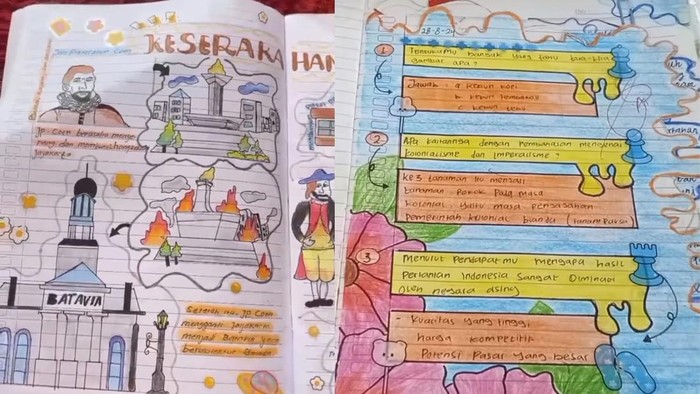 KESERAKAHAN
Jan Pieterzoon Coen
JP. Coen berusaha menye
rang dan menghancurkan
Jayakarta
BATAVIA
Setelah itu, JP. Coen
mengganti Jayakarta
menjadi Batavia yang
28-8-24
1
gambar apa?
Jawab : a. kebun kopi
b. kebun tembakau
c. kebun
2
Apa kaitannya dengan Pembahasan mengenai
kolonialisme dan imperialisme?
ke 3 tanaman itu menjadi
tanaman Pokok Pada masa
kolonial yaitu masa penjajahan
Pemerintah kolonial Blanda (tanam Paksa)
3
Menurut Pendapat mu mengapa hasil
Pertanian Indonesia Sangat Diminati
Oleh negara asing
- Kualitas yang tinggi
harga kompetitif
Potensi Pasar yang besar